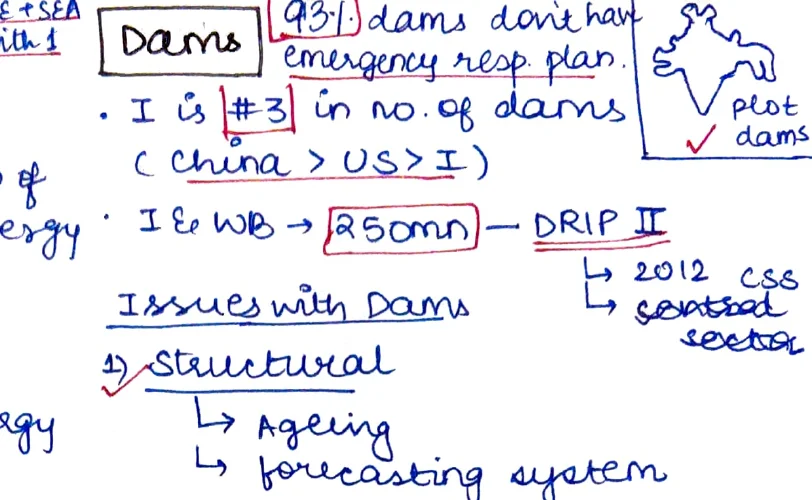 E + SEA
ith 1
Dams
93% dams don't have
emergency resp. plan.
• I is #3 in no. of dams
(China > US > I)
plot
dams
of
ergy
• I & WB → 250mn — DRIP II
↳ 2012 CSS
↳ central
sector
Issues with Dams
1) Structural
↳ Ageing
↳ forecasting system
rgy